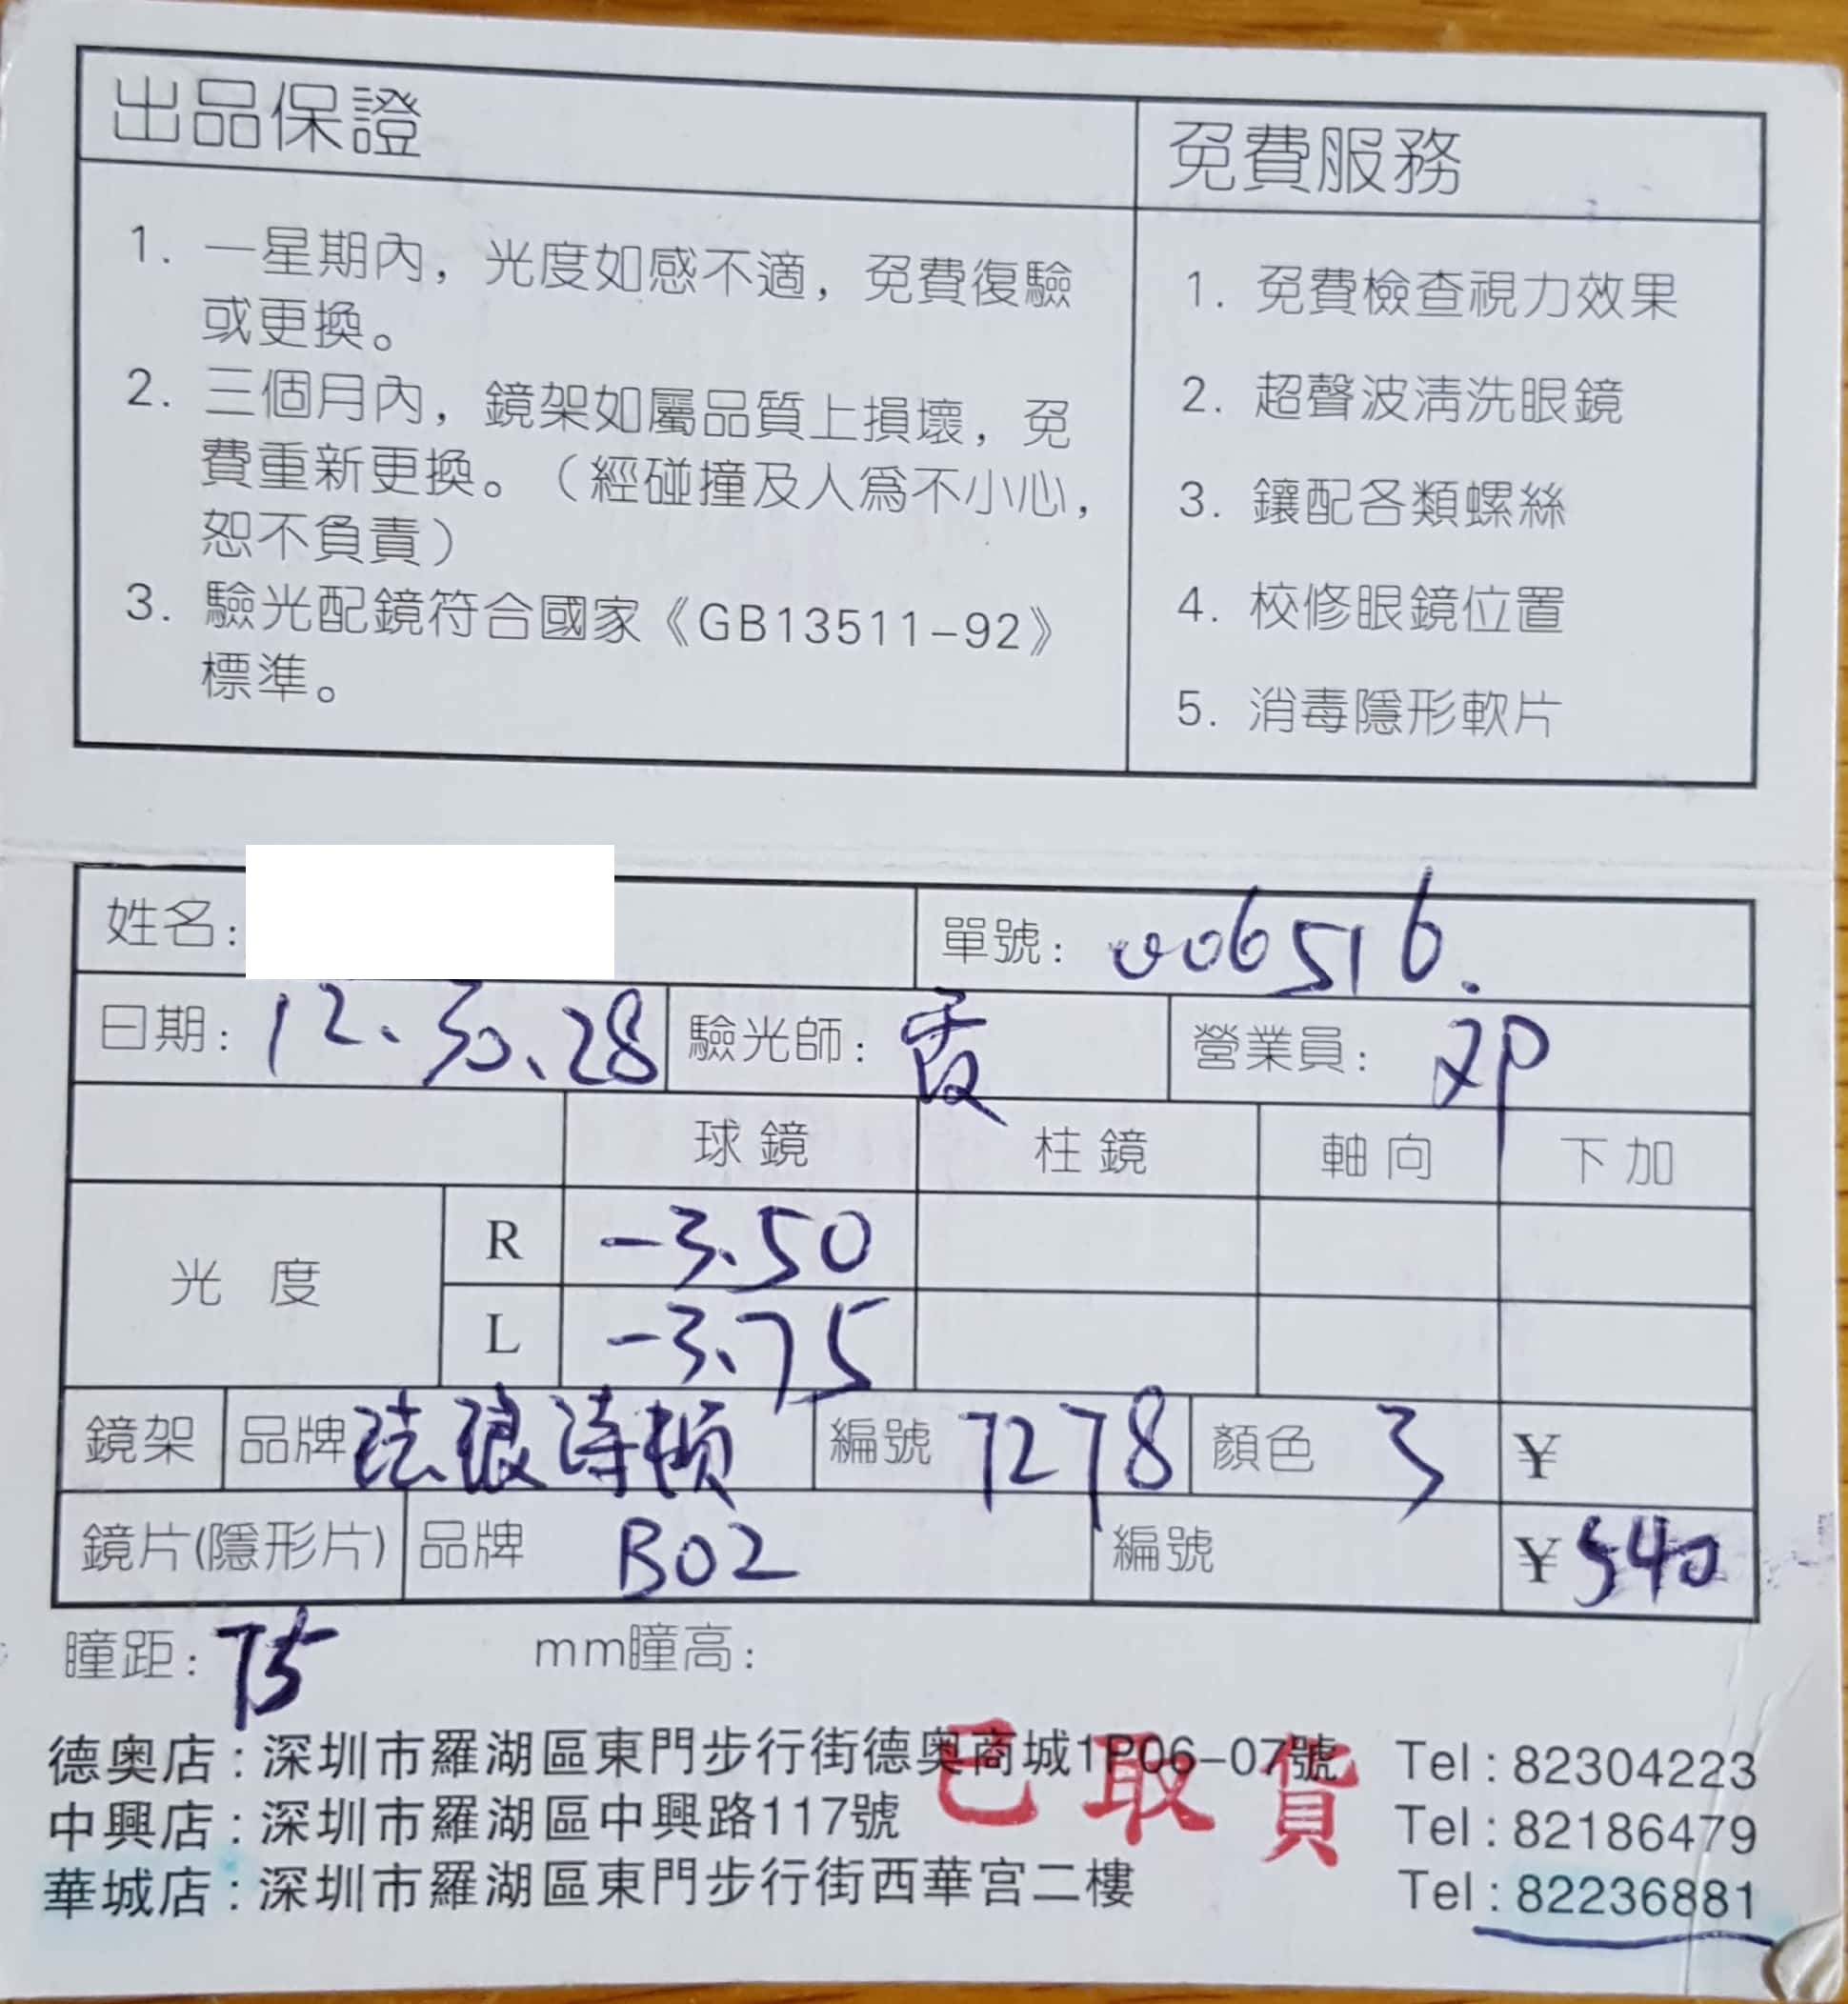 出品保證
1. 一星期內，光度如感不適，免費復驗
或更換。
2. 三個月內，鏡架如屬品質上損壞，免
費重新更換。（經碰撞及人爲不小心，
恕不負責）
3. 驗光配鏡符合國家《GB13511-92》
標準。
免費服務
1. 免費檢查視力效果
2. 超聲波清洗眼鏡
3. 鑲配各類螺絲
4. 校修眼鏡位置
5. 消毒隱形軟片
姓名: 單號: 006516.
日期: 12.30.28 驗光師: 霞 營業員:
球鏡 柱鏡 軸向 下加
光度
R -3.50
L -3.75
鏡架 品牌 琺瑯诗顿 編號 7278 顏色 3 ¥
鏡片(隱形片) 品牌 B02 編號 ¥540
瞳距: 75 mm瞳高:
德奧店:深圳市羅湖區東門步行街德奧商城1P06-07號 Tel:82304223
中興店:深圳市羅湖區中興路117號 Tel:82186479
華城店:深圳市羅湖區東門步行街西華宮二樓 Tel:82236881
已取貨